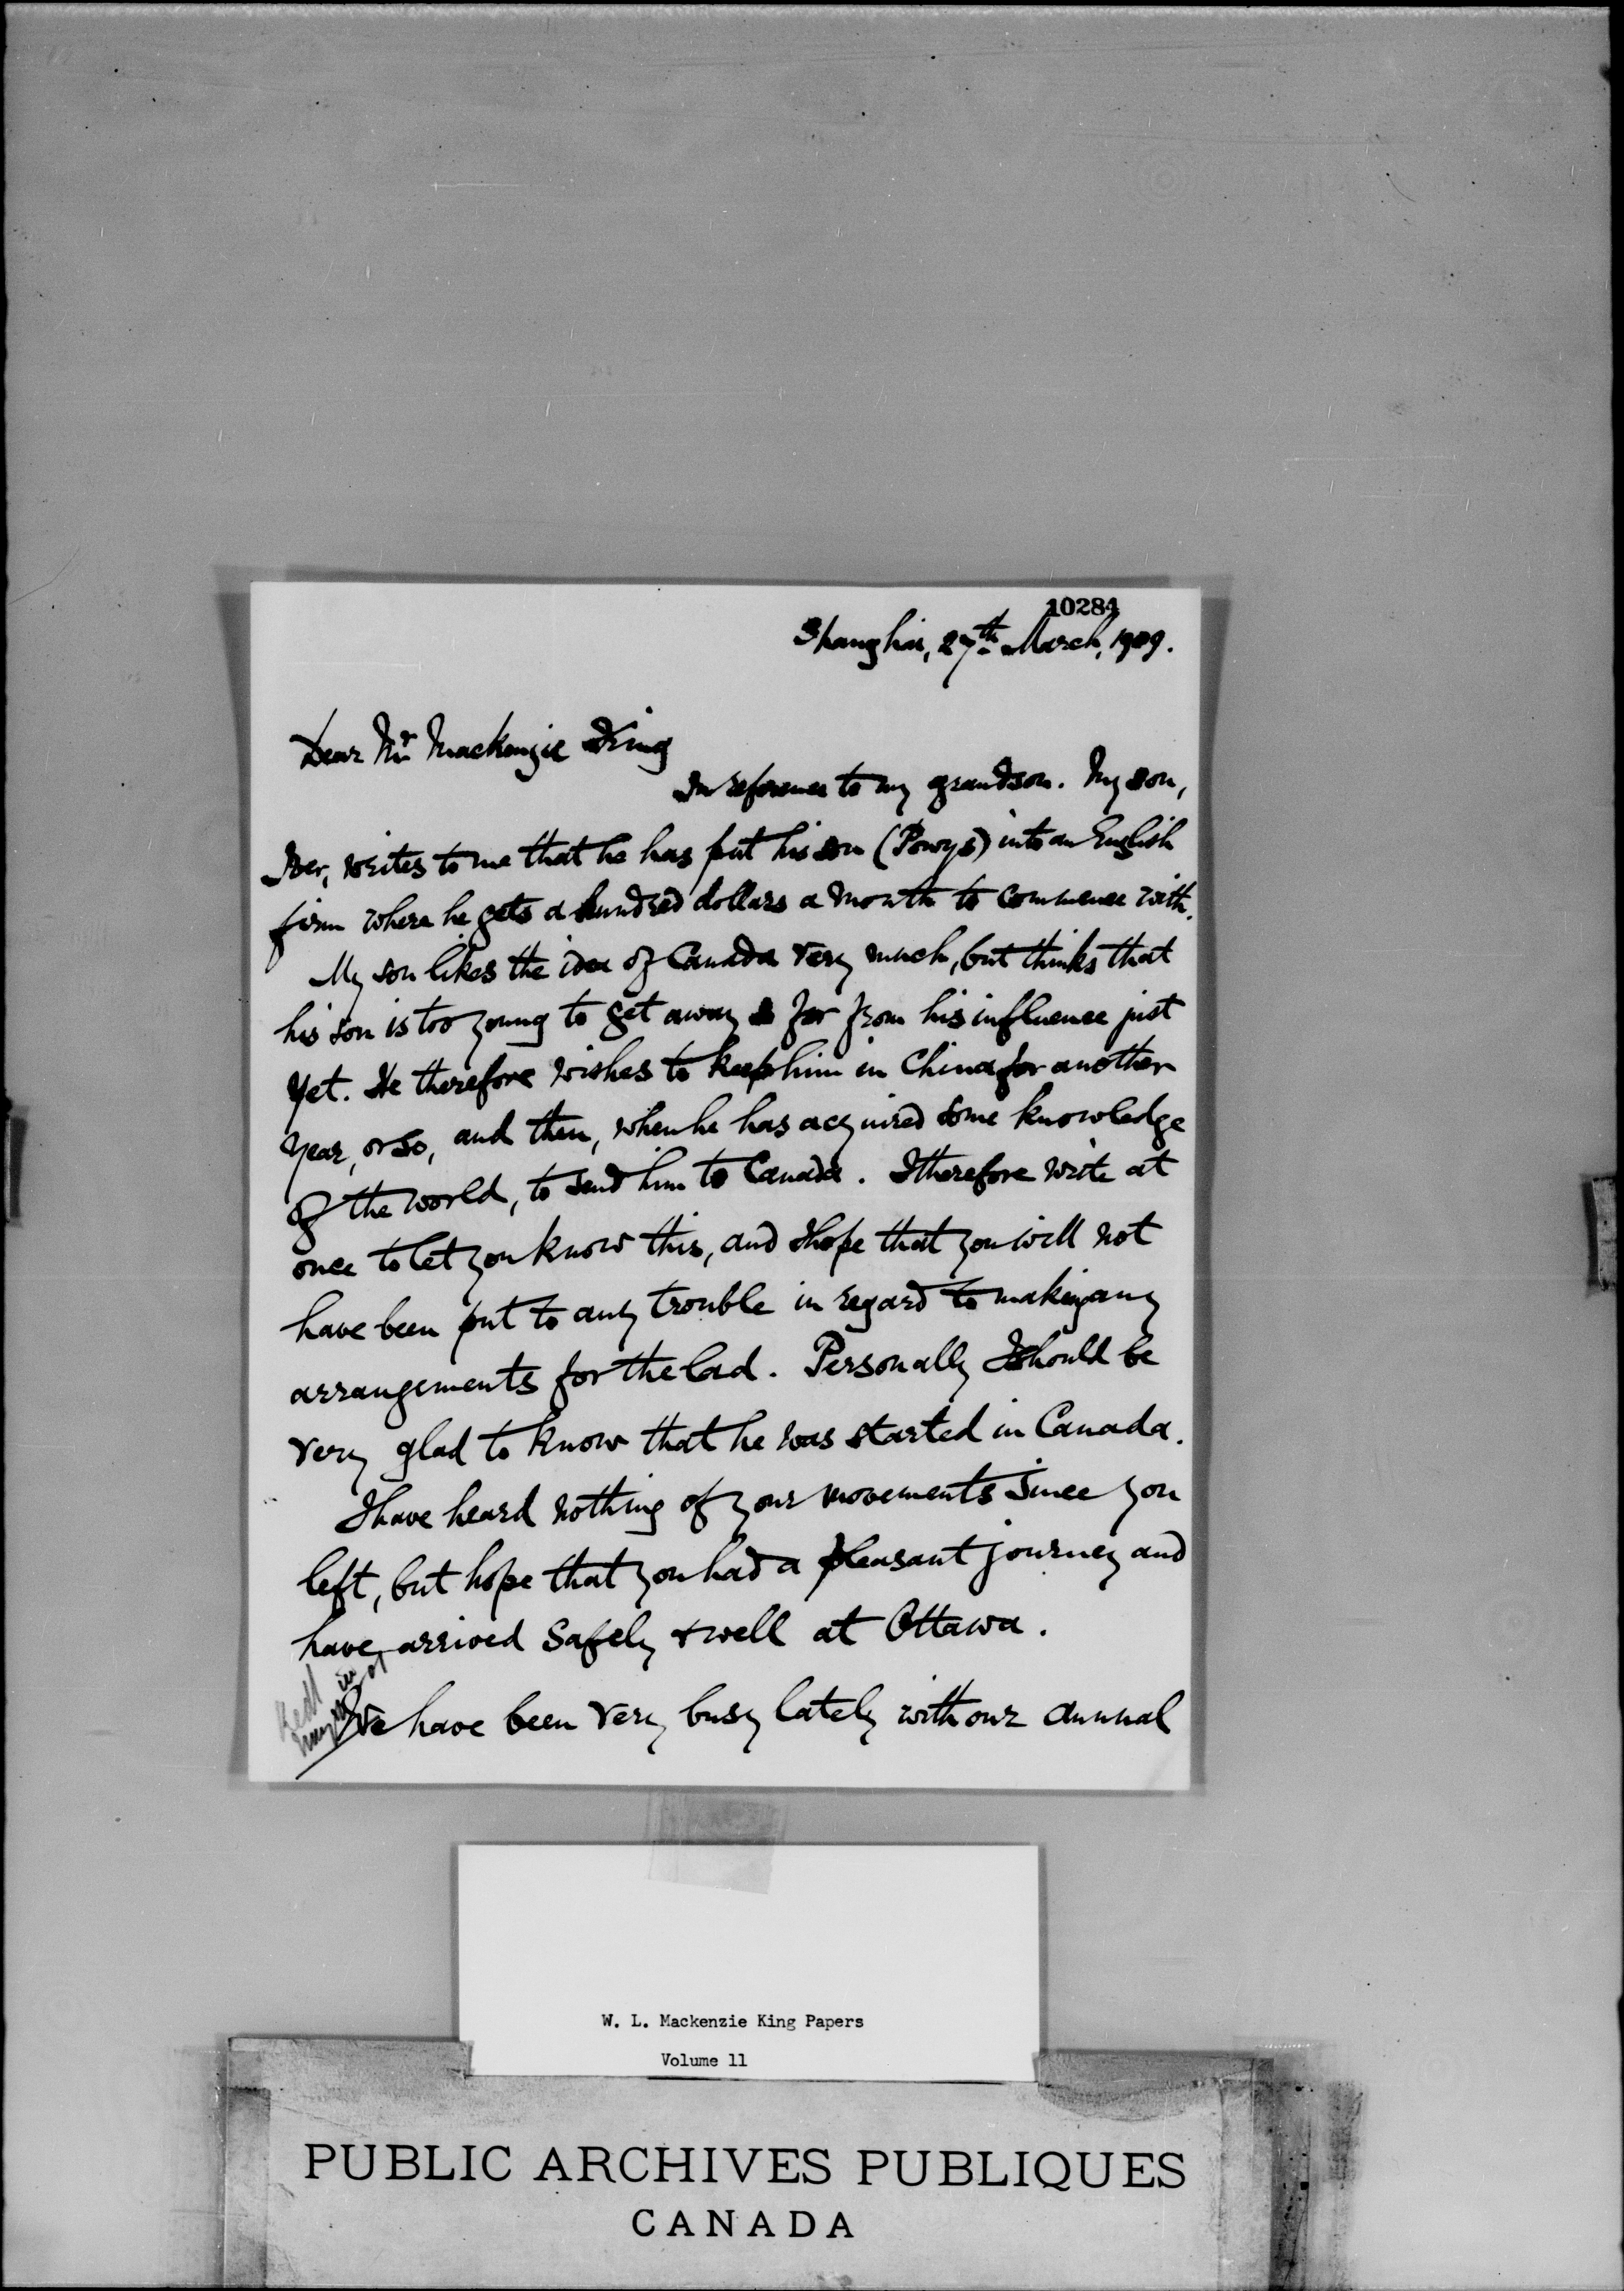 10284
Shanghai, 27th March, 1909.
Dear Mr Mackenzie King
In reference to my grandson. My son,
Iver, writes to me that he has put his son (Powys) into an English
firm where he gets a hundred dollars a month to commence with.
My son likes the idea of Canada very much, but thinks that
his son is too young to get away so far from his influence just
yet. He therefore wishes to keep him in China for another
year, or so, and then, when he has acquired some knowledge
of the world, to send him to Canada. I therefore write at
once to let you know this, and I hope that you will not
have been put to any trouble in regard to making any
arrangements for the lad. Personally I should be
very glad to know that he was started in Canada.
I have heard nothing of your movements since you
left, but hope that you had a pleasant journey and
have arrived safely & well at Ottawa.
We have been very busy lately with our annual
W. L. Mackenzie King Papers
Volume 11
PUBLIC ARCHIVES PUBLIQUES
CANADA